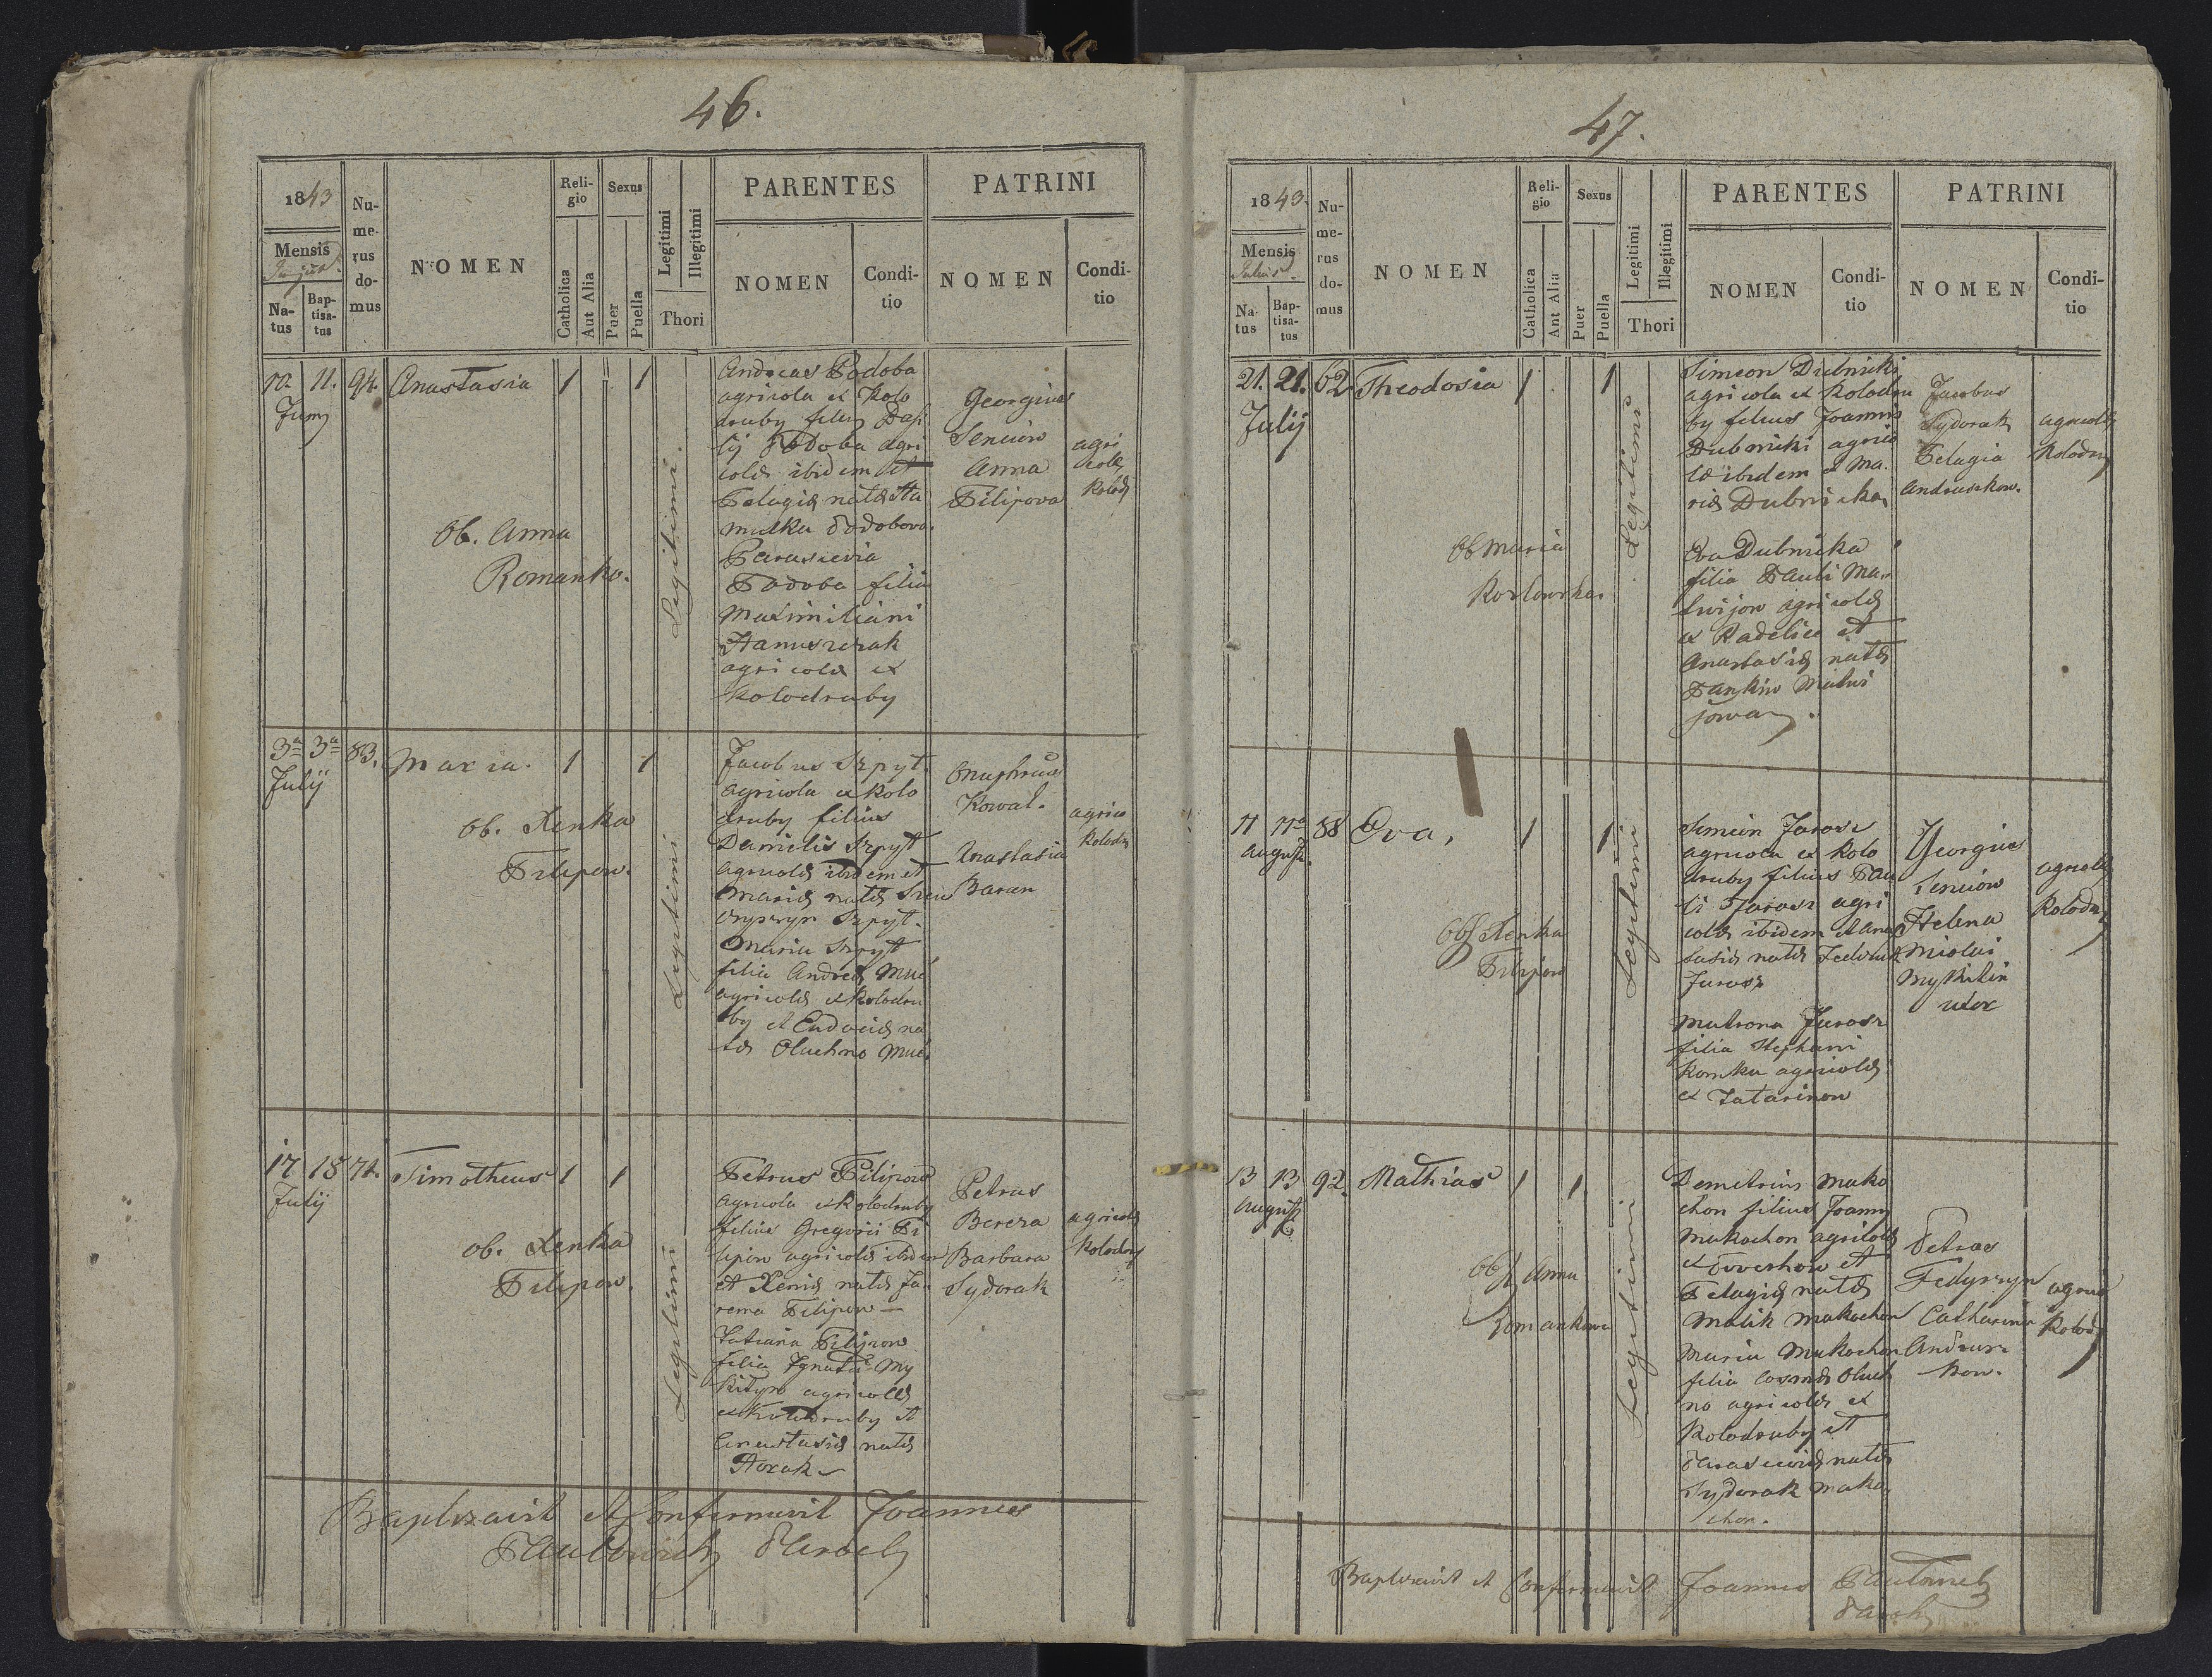 46.
1843
Mensis
Na-
tus
Bap-
tisa-
tus
Nu-
me-
rus
do-
mus
NOMEN
Reli-
gio
Catholica
Aut Alia
Sexus
Puer
Puella
Legitimi
Illegitimi
Thori
PARENTES
NOMEN
Condi-
tio
PATRINI
NOMEN
Condi-
tio
10. 11. 94. Anastasia 1 1
Juny
Ob. Anna
Romanko.
Legitimi.
Andreas Podoba
agricola ex Kolo
druby filius Basi
lij Podoba agri
colæ ibidem et
Pelagiæ natæ Ha
mulka Podobova.
Parascevia
Podoba filia
Maximiliani
Hanuszczak
agricolæ ex
Kolodruby
Georgius
Senciow
Anna
Filipova
agri
colæ
Kolod
3a 3a 83. Maria. 1 1
Julij
ob. Xenka
Filipow.
Legitimi
Jacobus Szpyt
agricola ex Kolo
druby filius
Danielis Szpyt
agricolæ ibidem et
Mariæ natæ
Szpyt.
Maria Szpyt
filia Andreæ Muć
agricolæ ex Kolodru
by et Eudociæ na
tæ Oluchno Muć.
Onuphrius
Kowal.
Anastasia
Baran
agrico
Kolodr
17 18 74. Timotheus 1 1
Julij
ob. Xenka
Filipow.
Legitimi
Petrus Filipow
agricola ex Kolodruby
filius Gregorii Fi
lipow agricolæ ibidem
et Xeniæ natæ Ja
rema Filipow —
Tatiana Filipow
filia Ignatii My
kityn agricolæ
ex Kolodruby et
Anastasiæ natæ
Horak
Petrus
Bereza
Barbara
Sydorak
agricolæ
Kolodry
Baptizavit et Confirmavit Joannes
Paulowicz Paroch
47.
1843.
Mensis
Julius
Na-
tus
Bap-
tisa-
tus
Nu-
me-
rus
do-
mus
NOMEN
Reli-
gio
Catholica
Ant Alia
Sexus
Puer
Puella
Legitimi
Illegitimi
Thori
PARENTES
NOMEN
Condi-
tio
PATRINI
NOMEN
Condi-
tio
21. 21. 62 Theodosia 1 1
Julij
Ob Maria
Kozlowska
Legitimi
Simeon Dubnicki
agricola ex Kolodru
by filius Joannis
Dubnicki agrico
læ ibidem et Ma.
riæ Dubnicka
Eva Dubnicka
filia Pauli Ma.
twijow agricolæ
ex Radelicz et
Anastasiæ natæ
Pankiw Matwi
jowa.
Jacobus
Sydorak
Pelagia
Andruszkow.
agricolæ
Kolodry
11 11a 88 Eva, 1 1
August.
Obst Xenka
Filipow
Legitimi
Simeon Jarosz
agricola ex Kolo
druby filius Pau
li Jarosz agri
colæ ibidem et Ana
stasiæ natæ
Jarosz
Matrona Jarosz
filia Stephani
Romka agricolæ
ex Tatarinow
Georgius
Senciow
Helena
Nicolai
Mykitin
uxor
agricolæ
Kolodry
13 13 92. Mathias 1 1
August
Obst Anna
Romankowa
Legitimi
Demetrius Mako
chon filius Joannis
Makochon agricolæ
ex et
Pelagiæ natæ
Malik Makochon
Maria Makochon
filia Cosmæ Oluch
no agricolæ ex
Kolodruby et
Parasceviæ natæ
Sydorak Mako.
chon.
Petrus
Fedyszyn
Catharina
Andrusz
kow.
agrico
Kolodr
Baptizavit et Confirmavit Joannes
Paroch